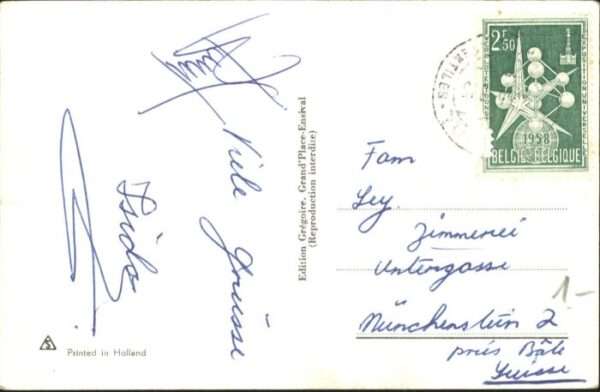 Viele Grüsse
Isido
Edition Grégoire, Grand'Place-Ensival
(Reproduction interdite)
2F50
1958
BELGIE-BELGIQUE
Fam
Ley.
Zimmerei
Untergasse
Münchenstein 2
près Bâle
Suisse
1-
Printed in Holland